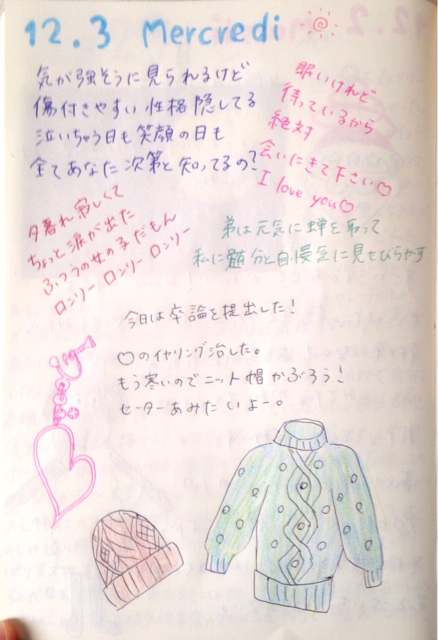 12.3 Mercredi
気が強そうに見られるけど
傷付きやすい性格隠してる
泣いちゃう日も笑顔の日も
全てあなた次第と知ってるの?
眠いけれど
待っているから
絶対
会いにきて下さい♡
I love you♡
夕暮れ寂しくて
ちょっと涙が出た
ふつうの女の子だもん
ロンリー ロンリー ロンリー
弟は元気に蝉を取って
私に随分と自慢気に見せびらかす
今日は卒論を提出した!
♡のイヤリング治した。
もう寒いのでニット帽かぶろう!
セーターあみたいよー。